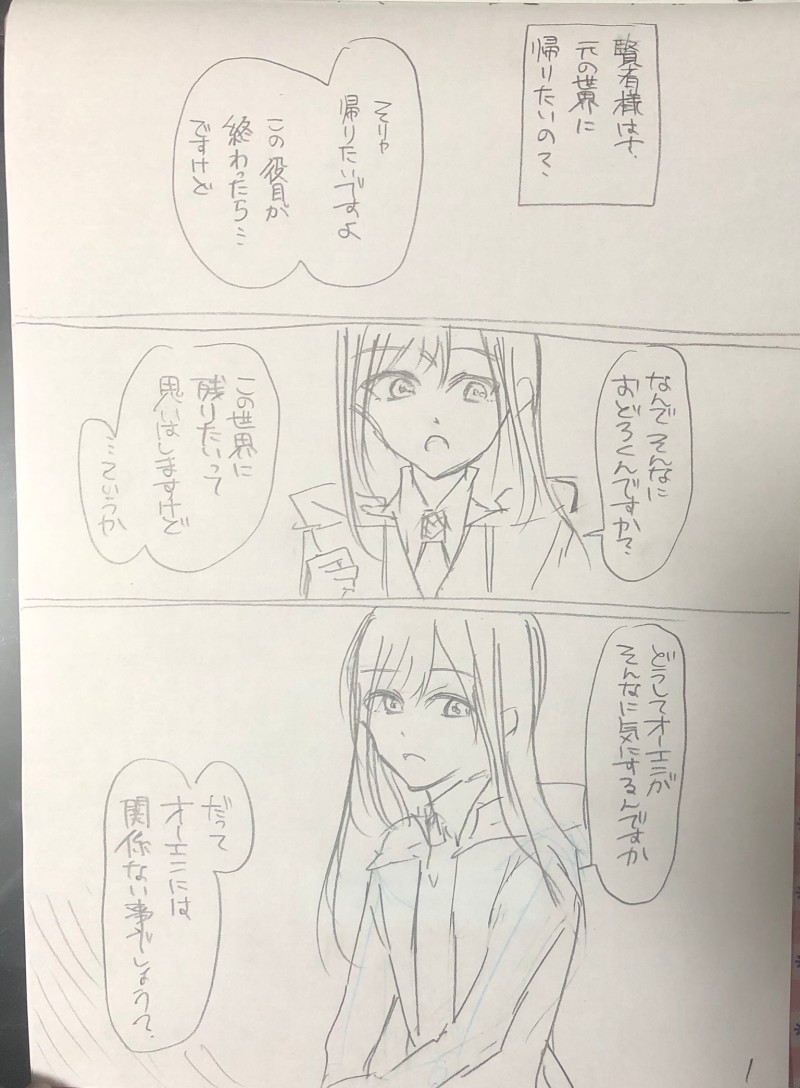 賢者様はさ
元の世界に
帰りたいの?
そりゃ
帰りたいですよ
この役目が
終わったら…
ですけど
なんでそんなに
おどろくんですか?
この世界に
残りたいって
思いはしますけど
…ていうか
どうしてオーエンが
そんなに気にするんですか
だって
オーエンには
関係ない事でしょう?
1